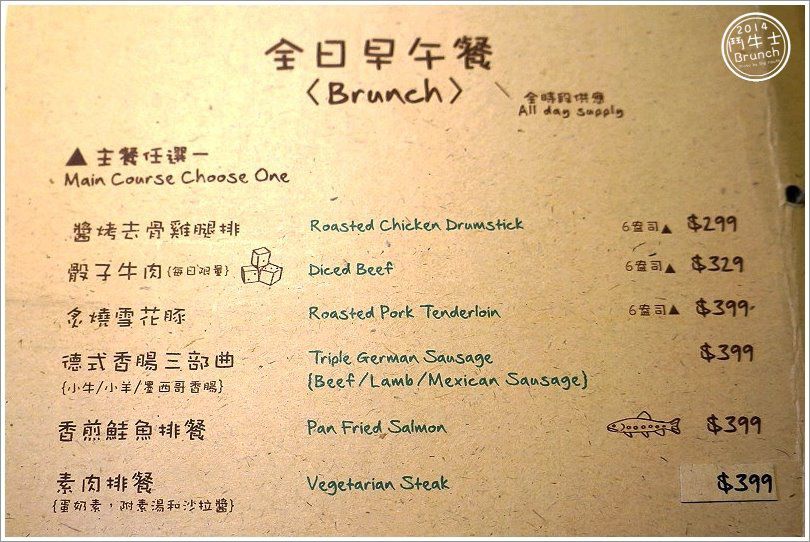 2014
鬥牛士
Brunch
全日早午餐
〈Brunch〉
全時段供應
All day supply
▲ 主餐任選一
Main Course Choose One
醬烤去骨雞腿排 Roasted Chicken Drumstick 6盎司▲ $299
骰子牛肉{每日限量} Diced Beef 6盎司▲ $329
炙燒雪花豚 Roasted Pork Tenderloin 6盎司▲ $399
德式香腸三部曲 Triple German Sausage $399
{小牛/小羊/墨西哥香腸} {Beef/Lamb/Mexican Sausage}
香煎鮭魚排餐 Pan Fried Salmon $399
素肉排餐 Vegetarian Steak $399
{蛋奶素，附素湯和沙拉醬}